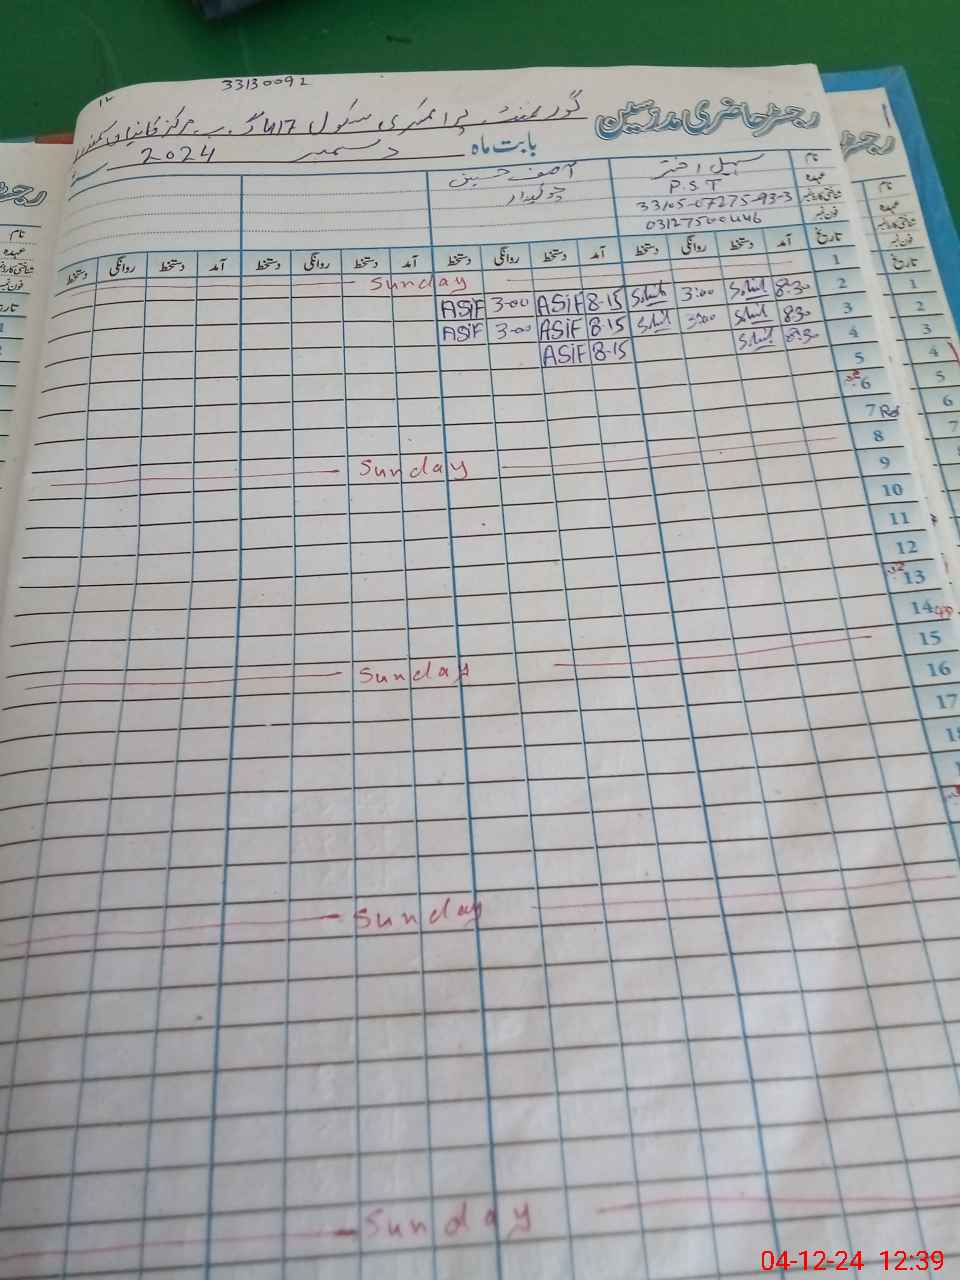 33130092
رجسٹر حاضری مدرسین
گورنمنٹ پرائمری سکول 417 گ۔ب
بابت ماہ دسمبر 2024
نام سہیل اختر آصف حسین
عہدہ P.S.T چوکیدار
شناختی کارڈ نمبر 33105-07275-93-3
فون نمبر 03127500446
تاریخ آمد دستخط روانگی دستخط آمد دستخط روانگی دستخط آمد دستخط روانگی دستخط آمد دستخط روانگی دستخط
1 Sunday
2 8:30 Sohil 3:00 Sohil 8-15 ASiF 3-00 ASiF
3 8:30 Sohil 3:00 Sohil 8-15 ASiF 3-00 ASiF
4 8:30 Sohil 8-15 ASiF
5
6
7
8 Sunday
9
10
11
12
13
14
15 Sunday
16
17
Sunday
Sunday
04-12-24 12:39